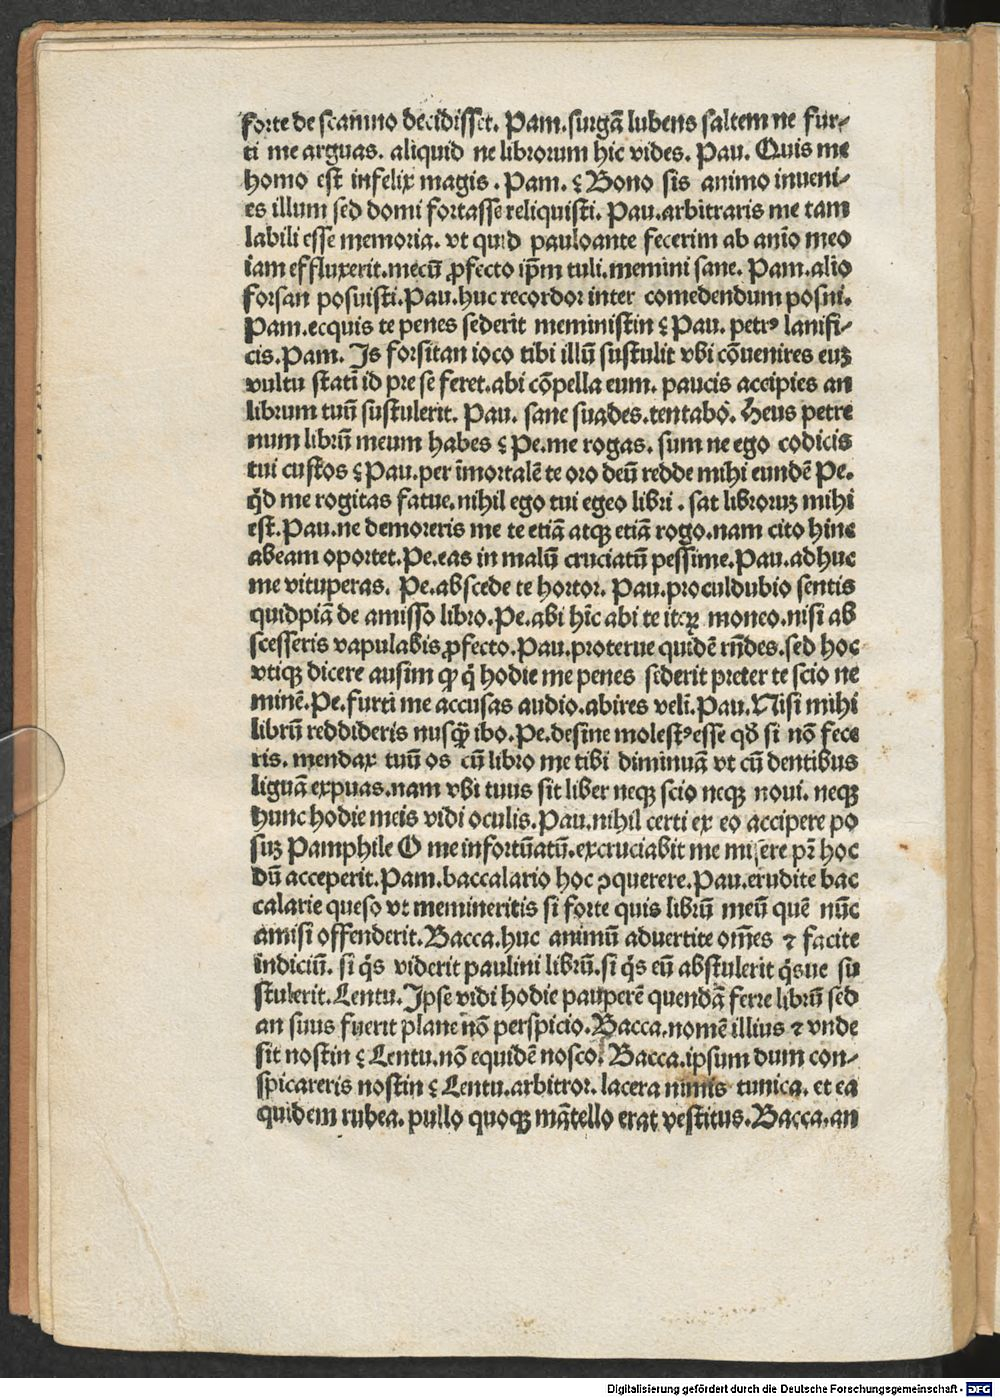 forte de scamno decidisset. Pam. surgā lubens saltem ne fur-
ti me arguas. aliquid ne librorum hic vides. Pau. Quis me
homo est infelix magis. Pam. ⁊ Bono sis animo inueni-
es illum sed domi fortasse reliquisti. Pau. arbitraris me tam
labili esse memoria. vt quid pauloante fecerim ab anīo meo
iam effluxerit. mecū ꝓfecto ip̄m tuli. memini sane. Pam. alio
forsan posuisti. Pau. huc recordor inter comedendum posui.
Pam. ecquis te penes sederit meministin ? Pau. petrꝰ lanifi-
cis. Pam. Is forsitan ioco tibi illū sustulit vbi cōuenires euꝫ
vultu statī id pre se feret. abi cōpella eum. paucis accipies an
librum tuū sustulerit. Pau. sane suades. tentabo. Heus petre
num librū meum habes ? Pe. me rogas. sum ne ego codicis
tui custos ? Pau. per īmortalē te oro deū redde mihi eundē Pe.
qd̄ me rogitas fatue. nihil ego tui egeo libri. sat libroruꝫ mihi
est. Pau. ne demoreris me te etiā atqꝫ etiā rogo. nam cito hinc
abeam oportet. Pe. eas in malū cruciatū pessime. Pau. adhuc
me vituperas. Pe. abscede te hortor. Pau. proculdubio sentis
quidpiā de amisso libro. Pe. abi hīc abi te iteꝝ moneo. nisi ab
scesseris vapulabis ꝓfecto. Pau. proterue quidē rn̄des. sed hoc
vtiqꝫ dicere ausim ꝙ q̄ hodie me penes sederit preter te scio ne
minē. Pe. furti me accusas audio. abires velī. Pau. Nisi mihi
librū reddideris nusqꝫ̄ ibo. Pe. desine molestꝰ esse qd̄ si nō fece
ris. mendax tuū os cū libro me tibi diminuā vt cū dentibus
liguā expuas. nam vbi tuus sit liber neqꝫ scio neqꝫ noui. neqꝫ
hunc hodie meis vidi oculis. Pau. nihil certi ex eo accipere po
suꝫ Pamphile O me infortūatū. excruciabit me misere pr̄ hoc
dū acceperit. Pam. baccalario hoc ꝯquerere. Pau. erudite bac
calarie queso vt memineritis si forte quis librū meū quē nūc
amisi offenderit. Bacca. huc animū aduertite om̄es ⁊ facite
indiciū. si q̄s viderit paulini librū. si q̄s eū abstulerit q̄sue su
stulerit. Lentu. Ipse vidi hodie pauperē quendā ferre librū sed
an suus fuerit plane nō perspicio. Bacca. nomē illius ⁊ vnde
sit nostin ? Lentu. nō equidē nosco. Bacca. ipsum dum con-
spicareris nostin ? Lentu. arbitror. lacera nimis tunica. et ea
quidem rubea. pullo quoqꝫ mātello erat vestitus. Bacca. an
Digitalisierung gefördert durch die Deutsche Forschungsgemeinschaft - DFG